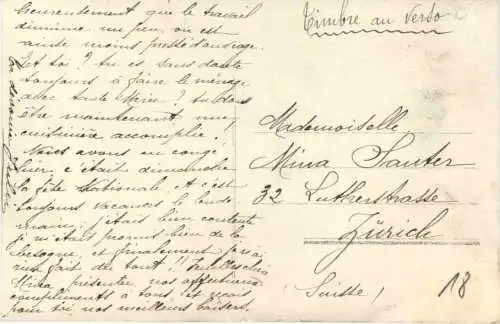 heureusement que le travail
diminue un peu, on est
ainsi moins pressé d'ouvrage.
Et toi? tu es sans doute
toujours à faire le ménage
avec tante ? tu dois
être maintenant, une
cuisinière accomplie!
Nous avons eu congé
hier, c'était dimanche
la fête Nationale et c'est
toujours vacances le lende
main; j'étais bien contente
je m'étais promis bien de la
besogne, et finalement je n'ai
rien fait du tout!! Veuillez chère
Mina, présenter, nos affectueux
compliments à tous, et reçois
pour toi nos meilleurs baisers.
Timbre au Verso
Mademoiselle
Mina Sauter
32 Lutherstrasse
Zürich
Suisse!
18